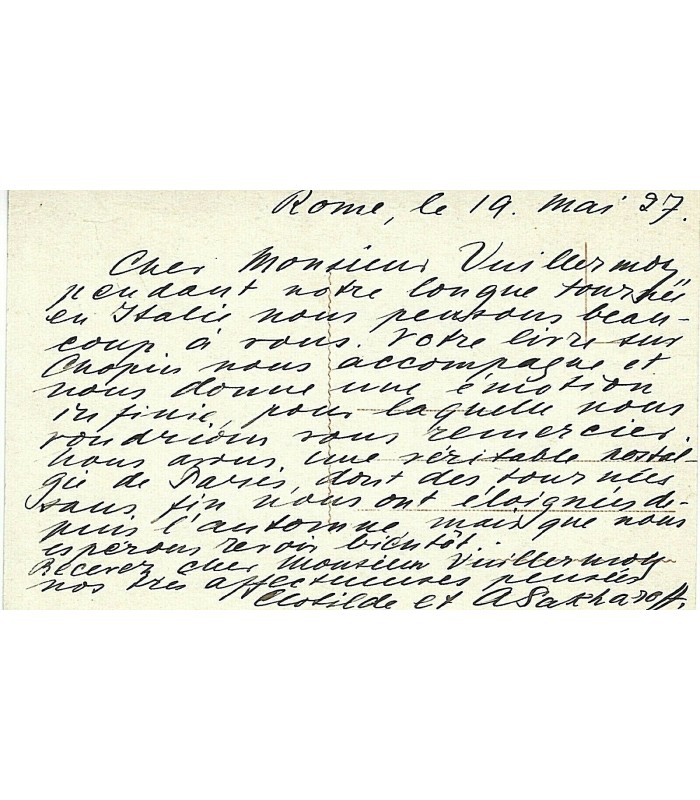 Rome, le 19. Mai 27.
Cher Monsieur Vuillermoz
pendant notre longue tournée
en Italie nous pensons beau-
coup à vous. Votre livre sur
Chopin nous accompagne et
nous donne une émotion
infinie, pour laquelle nous
voudrions vous remercier.
Nous avons une véritable nostal-
gie de Paris, dont des tournées
sans fin nous ont éloignés de-
puis l'automne, mais que nous
espérons revoir bientôt.
Recevez cher Monsieur Vuillermoz
nos très affectueuses pensées
Clotilde et A Sakharoff.